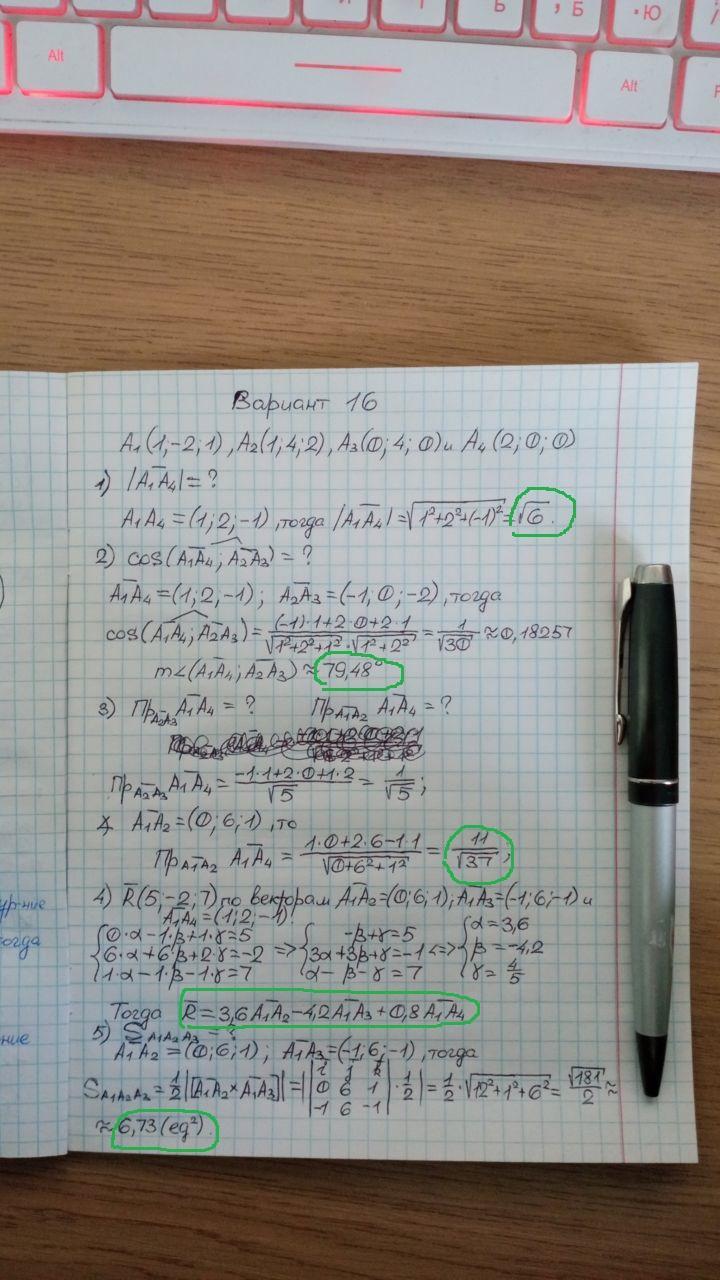 Alt
Ь
Б
Ю
Alt
Вариант 16
A₁(1;-2;1), A₂(1;4;2), A₃(0;4;0) и A₄(2;0;0)
1) |A₁A₄| = ?
A₁A₄ = (1;2;-1), тогда |A₁A₄| = √(1²+2²+(-1)²) = √6.
2) cos(A₁A₄; A₂A₃) = ?
A₁A₄ = (1;2;-1); A₂A₃ = (-1;0;-2), тогда
cos(A₁A₄; A₂A₃) = ((-1)·1+2·0+2·1)/(√(1²+2²+1²)·√(1²+2²)) = 1/√30 ≈ 0,18257
m∠(A₁A₄; A₂A₃) ≈ 79,48°
3) Пр A₂A₃ A₁A₄ = ? Пр A₁A₂ A₁A₄ = ?
Пр A₂A₃ A₁A₄ = (-1·1+2·0+1·2)/√5 = 1/√5;
A₁A₂ = (0;6;1), то
Пр A₁A₂ A₁A₄ = (1·0+2·6-1·1)/√(0+6²+1²) = 11/√37;
4) R(5;-2;7) по векторам A₁A₂=(0;6;1); A₁A₃=(-1;6;-1) и
A₁A₄=(1;2;-1)
{0·α-1·β+1·γ=5 {-β+γ=5 {α=3,6
{6·α+6β+2·γ=-2 => {3α+3β+γ=-1 <=> {β=-4,2
{1·α-1·β-1·γ=7 {α-β-γ=7 {γ=4/5
Тогда R = 3,6 A₁A₂ - 4,2 A₁A₃ + 0,8 A₁A₄
5) S A₁A₂A₃ = ?
A₁A₂ = (0;6;1); A₁A₃ = (-1;6;-1), тогда
S A₁A₂A₃ = 1/2 |[A₁A₂ × A₁A₃]| = | |i j k; 0 6 1; -1 6 -1| · 1/2 | = 1/2 · √(12²+1²+6²) = √181/2 ≈
≈ 6,73 (ед²).
ур-ние
огда
ние